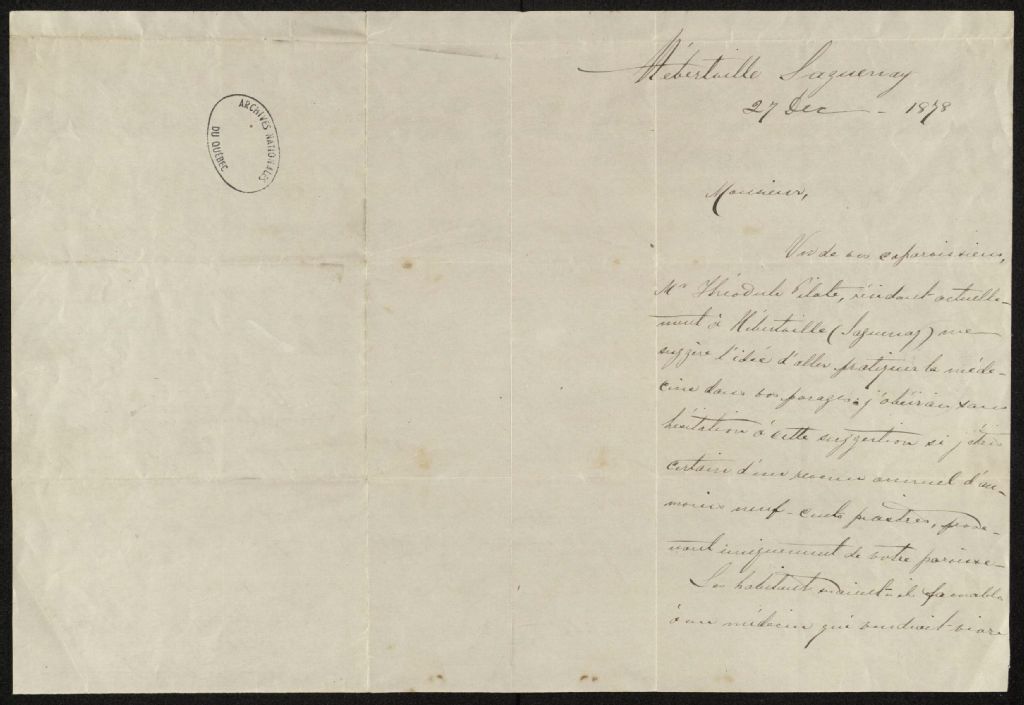 ARCHIVES NATIONALES
DU QUÉBEC
Hébertville Saguenay
27 Dec - 1878
Monsieur,
Un de vos coparoissiens,
Mr Théodule Pilote, résidant actuelle-
ment à Hébertville (Saguenay) me
suggère l'idée d'aller pratiquer la méde-
cine dans vos parages; j'obéirais sans
hésitation à cette suggestion si j'étais
certain d'un revenu annuel d'au-
moins neuf-cents piastres, prove-
nant uniquement de votre paroisse.
Les habitants seraient-ils favorables
à un médecin qui voudrait vivre